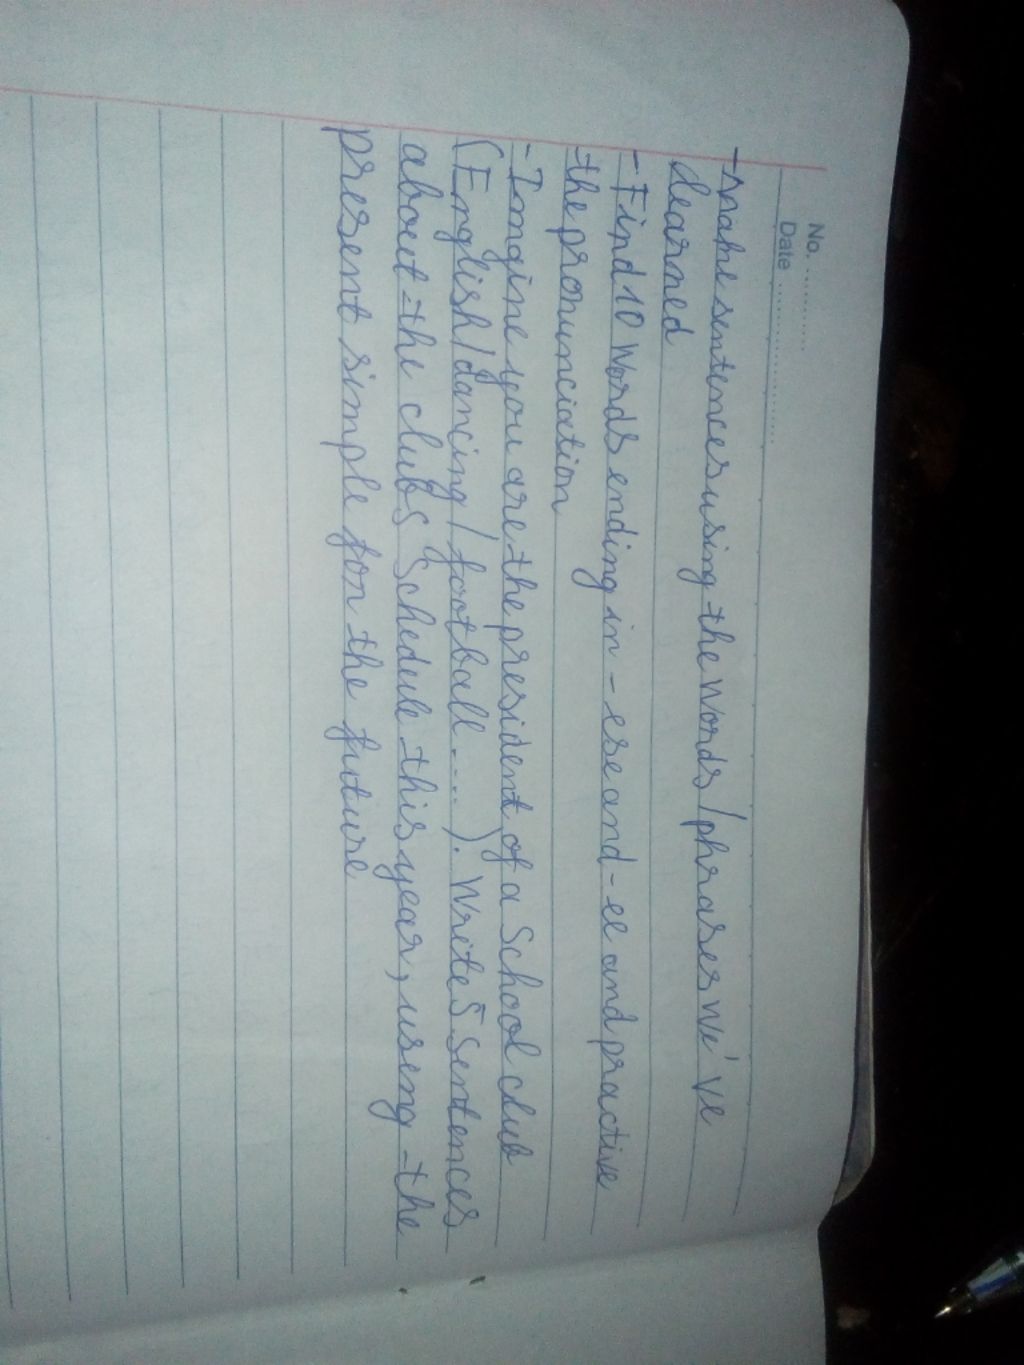 No. ..................
Date ..................
- Make sentences using the words / phrases we've
learned
- Find 10 words ending in - ese and - ee and practive
the pronunciation
- Imgine you are the president of a School club
(English / dancing / football ....). Write 5 sentences
about the clubs Schedule this year, useng the
present simple for the future